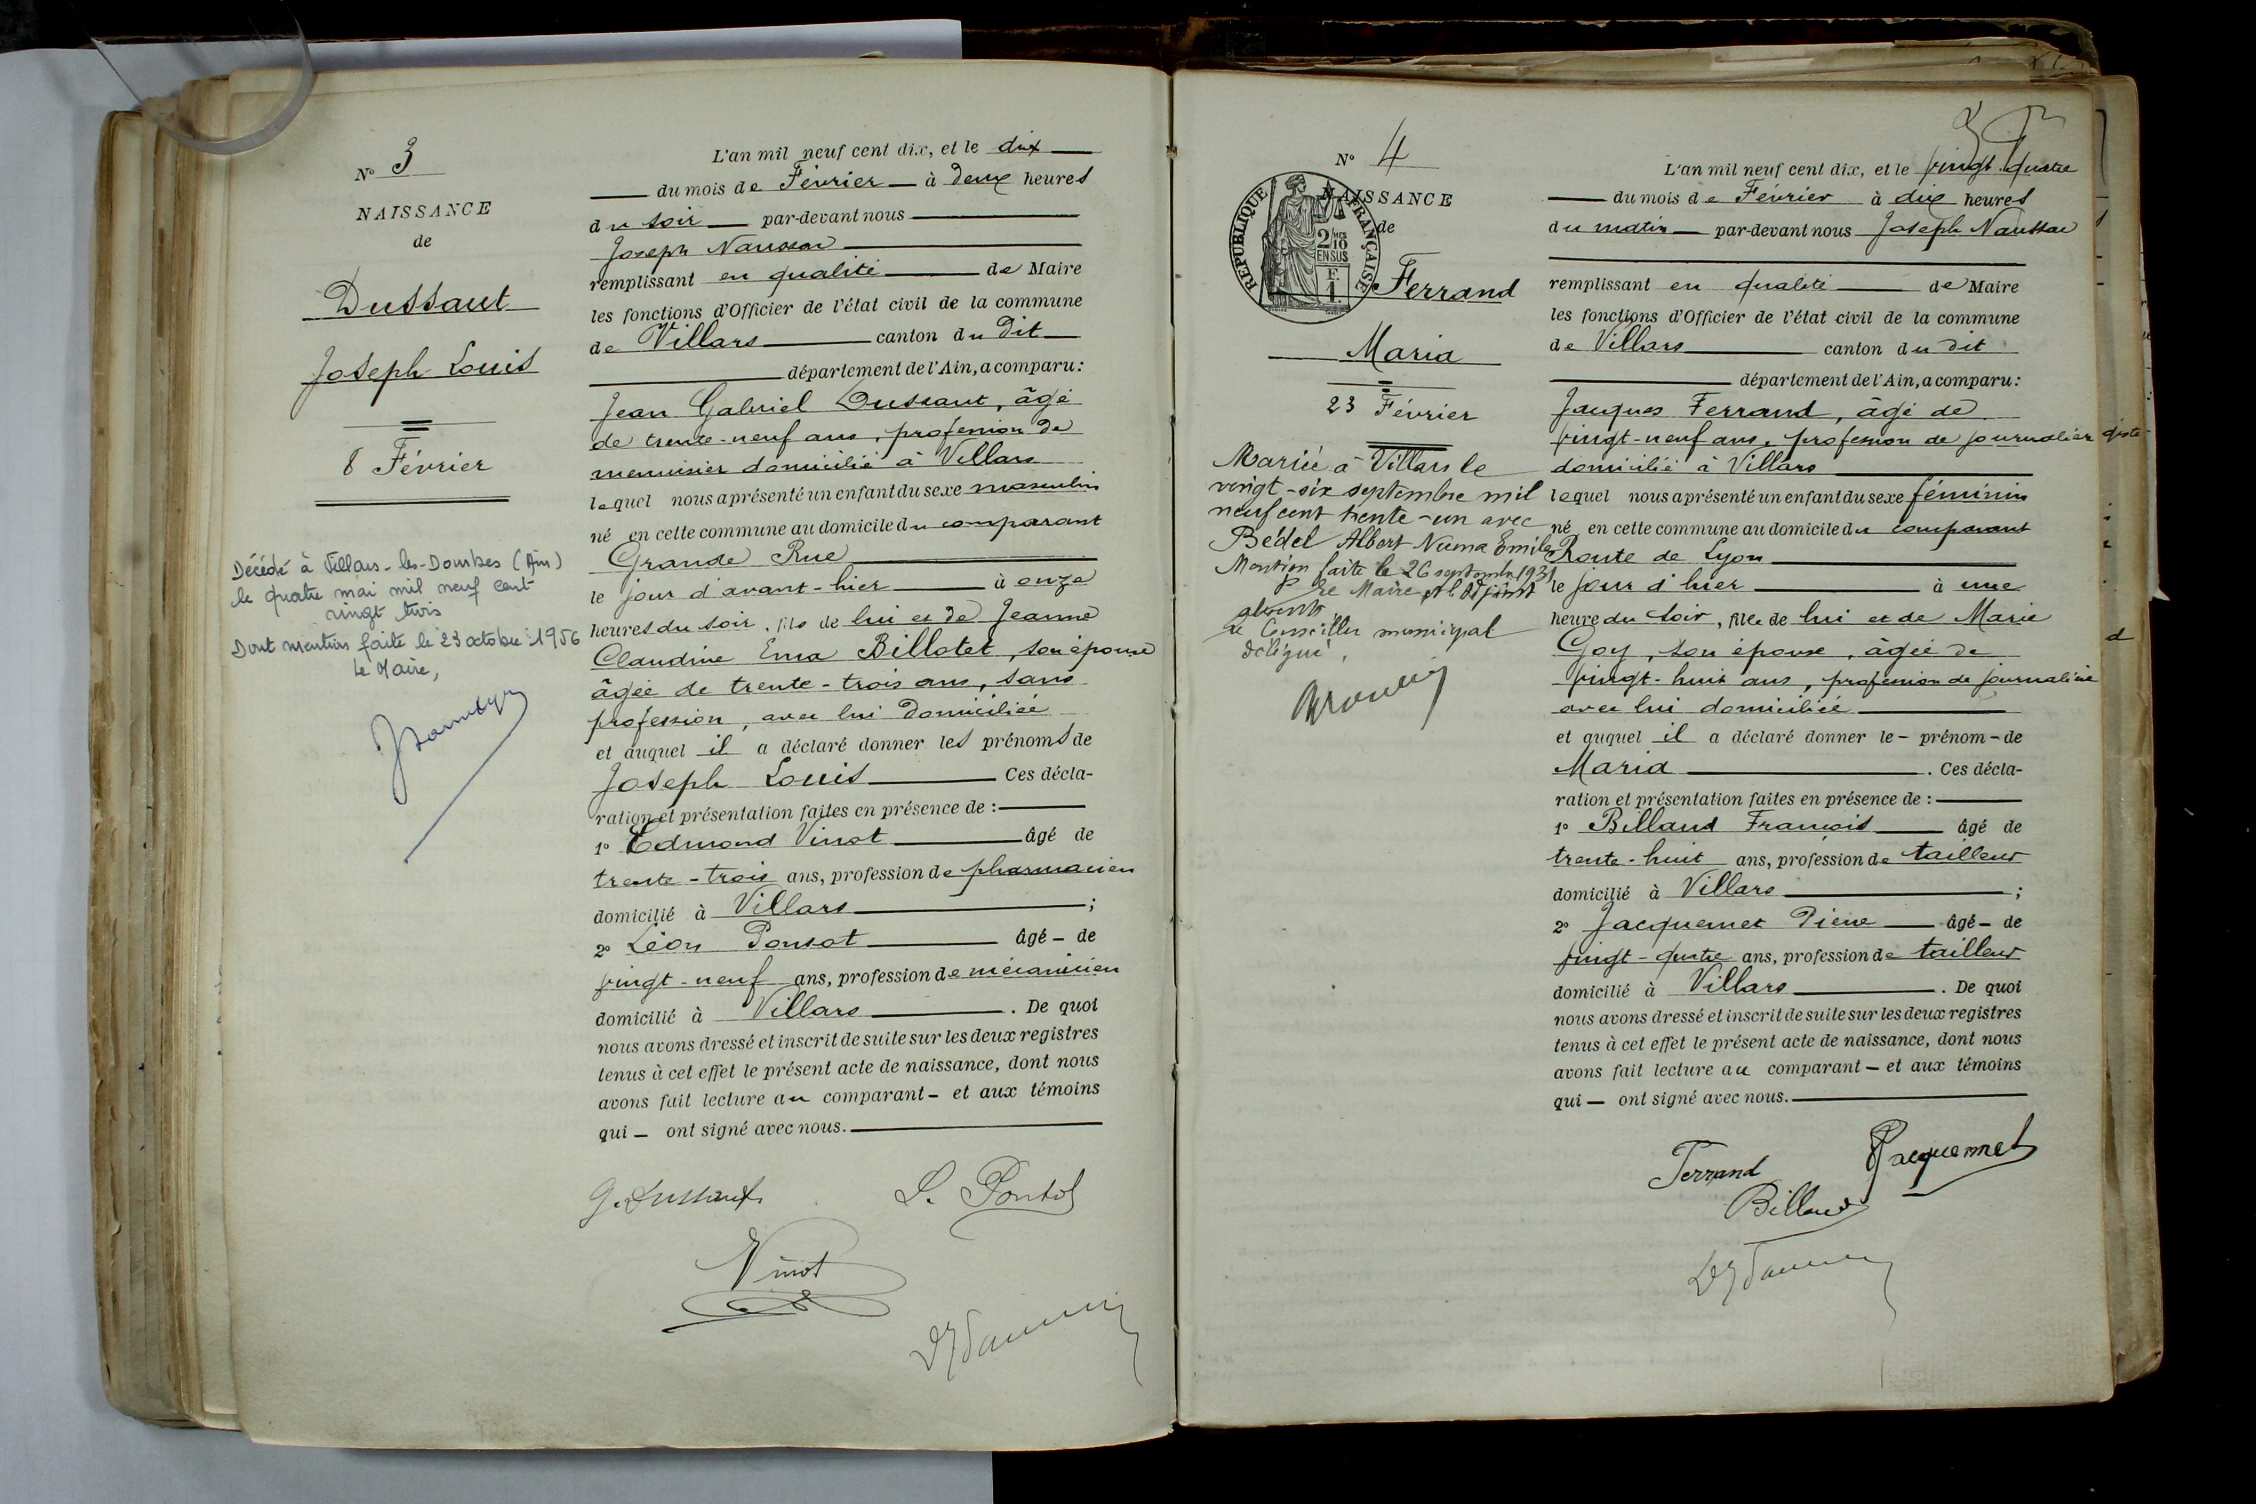 N° 3
NAISSANCE
de
Dussaut
Joseph Louis
8 Février
Décédé à Villars-les-Dombes (Ain)
le quatre mai mil neuf cent
vingt trois
Dont mention faite le 23 octobre 1956
Le Maire,
L'an mil neuf cent dix, et le dix
du mois de Février à deux heures
du soir par-devant nous
Joseph
remplissant en qualité de Maire
les fonctions d'Officier de l'état civil de la commune
de Villars canton du dit
département de l'Ain, a comparu:
Jean Gabriel Dussaut, âgé
de trente-neuf ans, profession de
menuisier domicilié à Villars
lequel nous a présenté un enfant du sexe masculin
né en cette commune au domicile du comparant
Grande Rue
le jour d'avant-hier à onze
heures du soir, fils de lui et de Jeanne
Claudine Ema Billotet, son épouse
âgée de trente-trois ans, sans
profession, avec lui domiciliée
et auquel il a déclaré donner les prénoms de
Joseph Louis Ces décla-
ration et présentation faites en présence de :
1° Edmond Vinot âgé de
trente-trois ans, profession de pharmacien
domicilié à Villars ;
2° Léon Ponsot âgé - de
vingt-neuf ans, profession de mécanicien
domicilié à Villars . De quoi
nous avons dressé et inscrit de suite sur les deux registres
tenus à cet effet le présent acte de naissance, dont nous
avons fait lecture au comparant - et aux témoins
qui - ont signé avec nous.
G. Dussaut L. Ponsot
Vinot
N° 4
NAISSANCE
de
RÉPUBLIQUE FRANÇAISE
2/10
EN SUS
F.
1.
Ferrand
Maria
23 Février
Mariée à Villars le
vingt-six septembre mil
neuf cent trente-un avec
Bédel Albert Numa Emile
Mention faite le 26 septembre 1931
Le Maire et l'Adjoint
absents
Le Conseiller municipal
délégué,
L'an mil neuf cent dix, et le vingt-quatre
du mois de Février à dix heures
du matin par-devant nous Joseph
remplissant en qualité de Maire
les fonctions d'Officier de l'état civil de la commune
de Villars canton du dit
département de l'Ain, a comparu:
Jacques Ferrand, âgé de
vingt-neuf ans, profession de journalier
domicilié à Villars
lequel nous a présenté un enfant du sexe féminin
né en cette commune au domicile du comparant
Route de Lyon
le jour d'hier à une
heure du soir, fille de lui et de Marie
Goy, son épouse, âgée de
vingt-huit ans, profession de journalière
avec lui domiciliée
et auquel il a déclaré donner le - prénom - de
Maria . Ces décla-
ration et présentation faites en présence de :
1° Billaud François âgé de
trente-huit ans, profession de tailleur
domicilié à Villars ;
2° Jacquemet Pierre âgé - de
vingt-quatre ans, profession de tailleur
domicilié à Villars . De quoi
nous avons dressé et inscrit de suite sur les deux registres
tenus à cet effet le présent acte de naissance, dont nous
avons fait lecture au comparant - et aux témoins
qui - ont signé avec nous.
Ferrand Jacquemet
Billaud